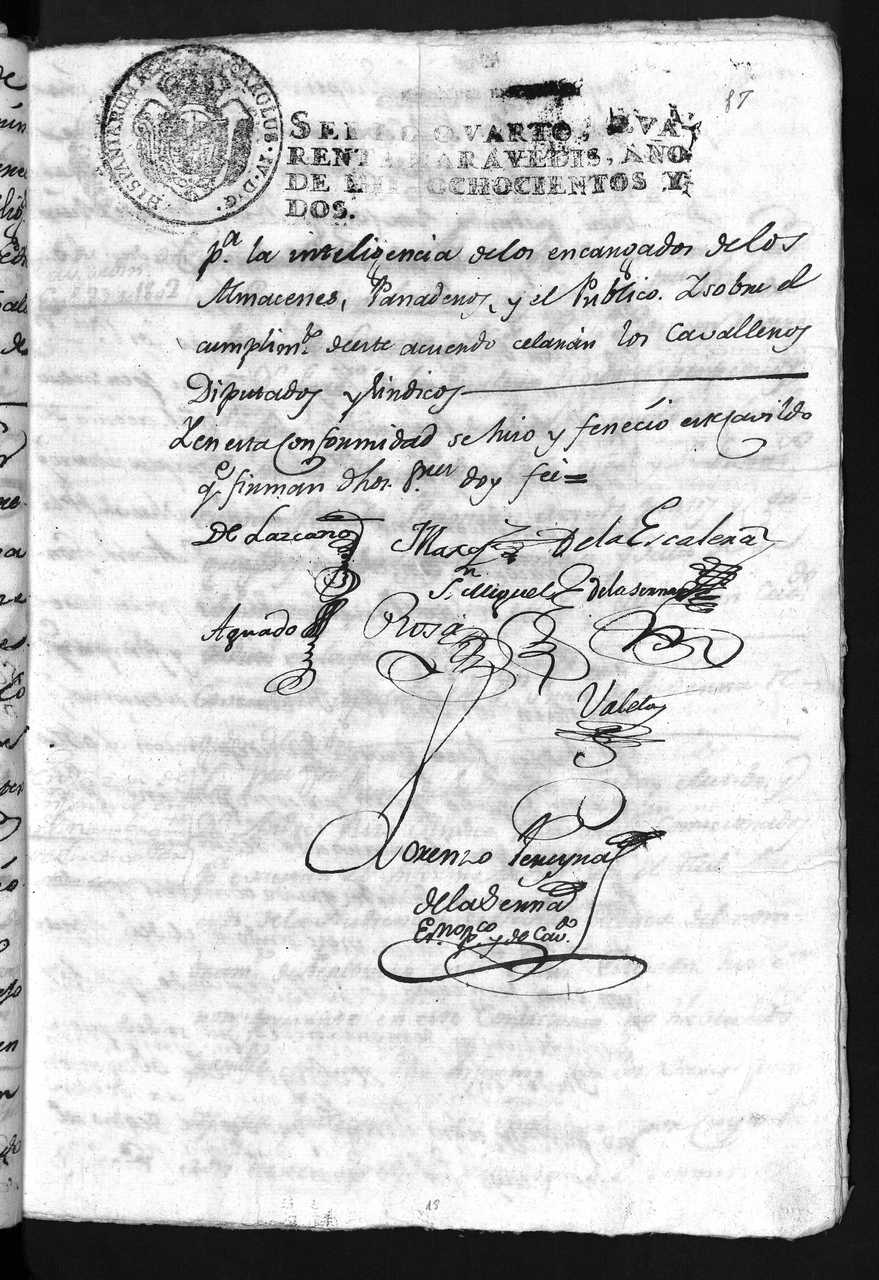 87
HISPANIARUM CAROLUS·IV·D·G·
SELLO QVARTO, QVA-
RENTA MARAVEDIS, AÑO
DE MIL OCHOCIENTOS Y
DOS.
pª. la inteligencia delos encargados delos
Almacenes, Panaderos, y el Publico. Y sobre el
cumplimto. deeste acuerdo celarán los Cavalleros
Diputados y Sindicos
Y en esta Conformidad se hizo y feneció este Cavildo
qe. firman dhos. Sres. doy feé=
De Lazcano Marqs. De la Escalera
Sn. Miguel de la Serna
Aguado Rosa
Valdes
Lorenzo Pereyra
de la Serna
Esno. pco. y de Cavdo.
18